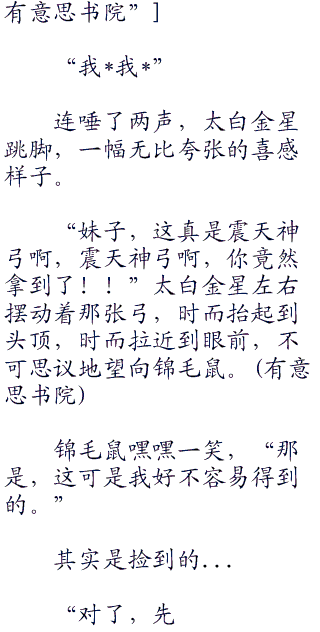 有意思书院”]
“我*我*”
连唾了两声，太白金星
跳脚，一幅无比夸张的喜感
样子。
“妹子，这真是震天神
弓啊，震天神弓啊，你竟然
拿到了！！”太白金星左右
摆动着那张弓，时而抬起到
头顶，时而拉近到眼前，不
可思议地望向锦毛鼠。(有意
思书院)
锦毛鼠嘿嘿一笑，“那
是，这可是我好不容易得到
的。”
其实是捡到的...
“对了，先